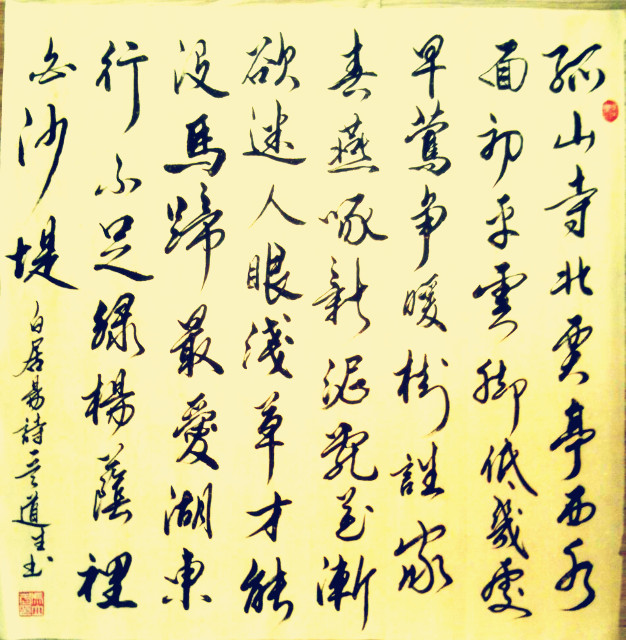 孤山寺北賈亭西水
面初平雲脚低幾處
早鶯争暖樹誰家
春燕啄新泥亂花漸
欲迷人眼淺草才能
没馬蹄最愛湖東
行不足綠楊蔭裡
白沙堤
白居易詩道生书